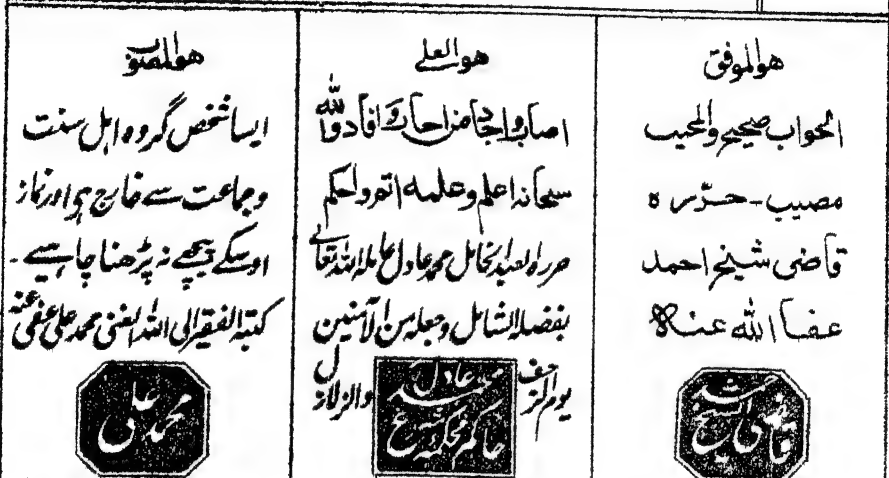 هوالموفق
الجواب صحیح والمجیب
مصیب - حررہ
قاضی شیخ احمد
عفا الله عنه
هو العلی
اصاب واجاد من اجاب وافاد والله
سبحانه اعلم وعلمه اتم واحکم
حرره العبد الخامل محمد عادل عامله الله تعالی
بفضله الشامل وجعله من الآمنین
یوم الزحف والزلازل
محمد عادل
حاکم محکمه شرع
هوالمصوب
ایسا شخص گروہ اہل سنت
وجماعت سے خارج ہی اور نماز
اوسکے پیچھے نہ پڑھنا چاہیے۔
کتبه الفقیر الی الله الغنی محمد علی عفی عنه
محمد علی